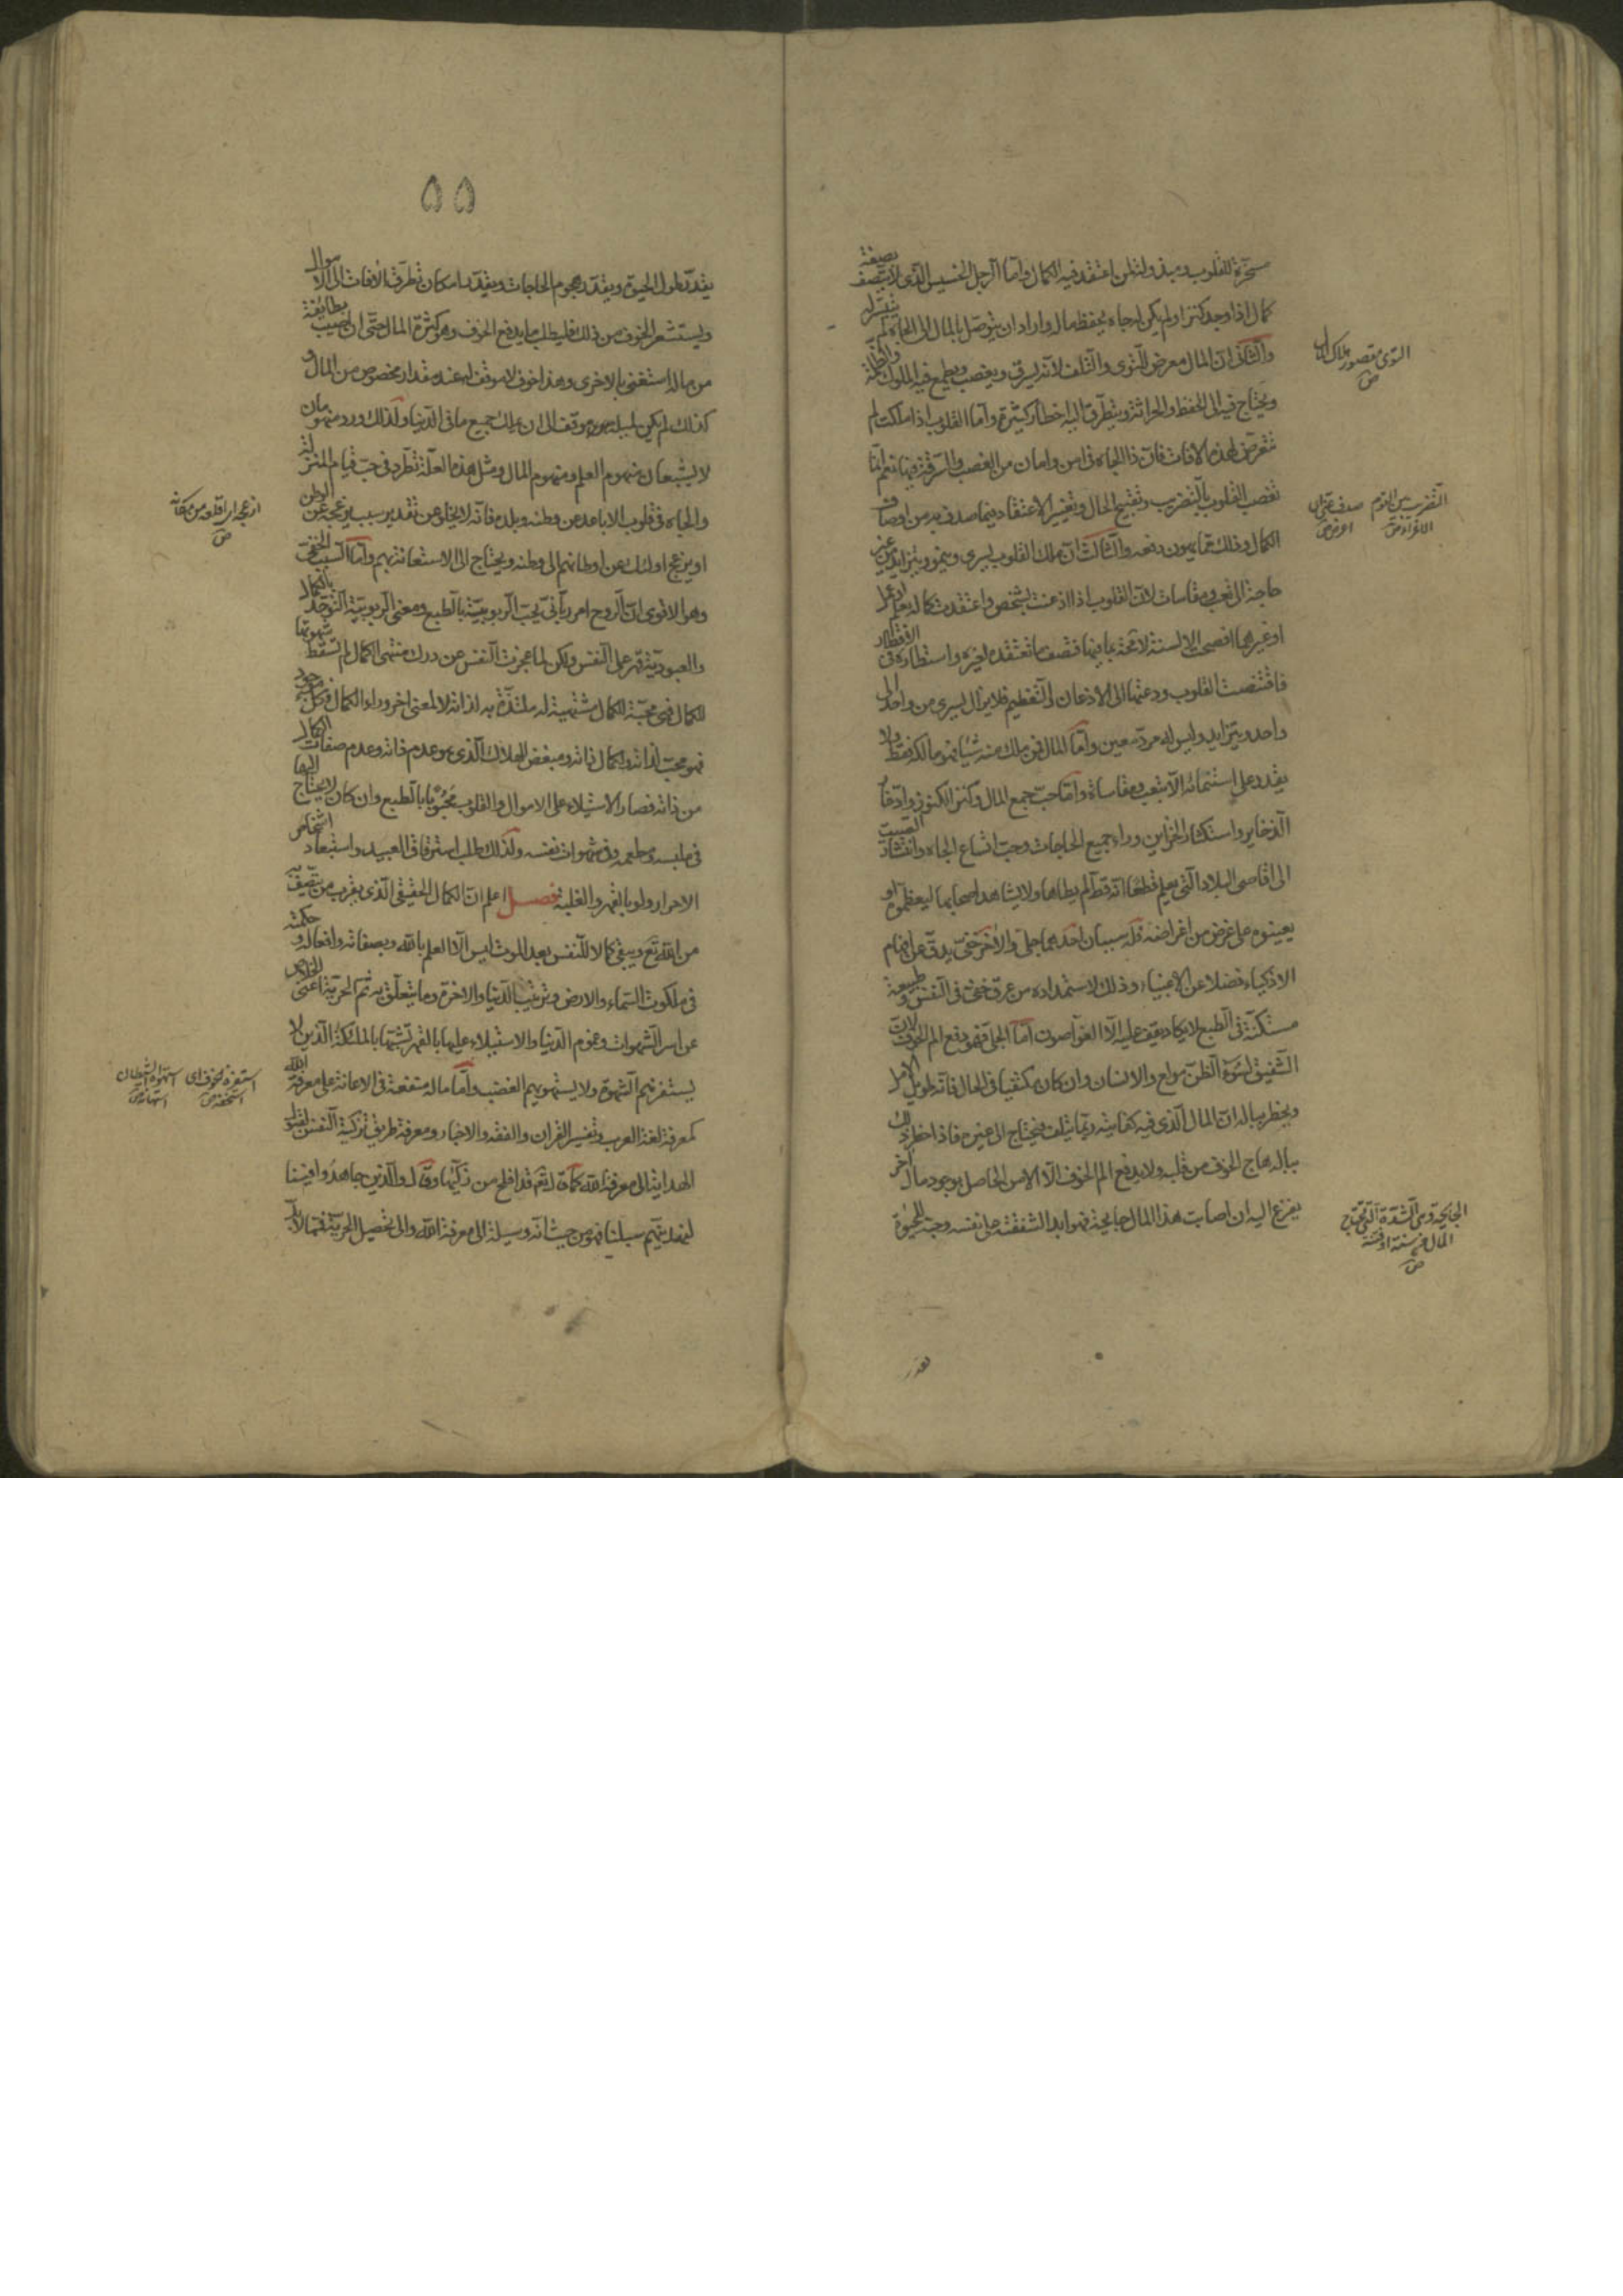 مسخرة للقلوب ومبذولة لمن اعتقد فيه الكمال واما الرجل الخسيس الذى لا يتصف بصفة
كمال اذا وجد كنزا ولم يكن له جاه يحفظ ماله واراد ان يتوصل بالمال الى الجاه لم يتيسر له
والثانى ان المال معرض للتوى والتلف لانه يسرق ويغصب ويطمع فيه الملوك والظلمة
ويحتاج فيه الى الحفظ والحراثة ويتطرق اليه اخطار كثيرة واما القلوب اذا ملكت لم
تتعرض لهذه الافات فان ذا الجاه فى امن وامان من الغصب والسرقة فيها نعم انما
تغصب القلوب بالتضريب وتقبيح الحال وتغيير الاعتقاد فيما صدق به من اوصاف
الكمال وذلك مما يهون دفعه والثالث ان ملك القلوب يسرى وينمو ويتزايد من غير
حاجة الى تعب ومقاسات لان القلوب اذا اذعنت لشخص واعتقدت كماله بعلم او عمل
او غيرهما افصحت الالسنة لا محة بما فيها فتصف ما تعتقده لغيره واستطار فى الاقطار
فاقتنصت القلوب ودعتها الى الاذعان والتعظيم فلا يزال يسرى من واحد الى
واحد ويتزايد وليس له مرد معين واما المال فمن ملك منه شيئا فهو مالكه فقط ولا
يقدر على استنمائه الا بتعب ومقاساة واما حب جمع المال وكنز الكنوز وادخار
الذخاير واستكثار الخزاين وراء جميع الحاجات وحب اتساع الجاه وانتشار الصيت
الى اقاصى البلاد التى يعلم قطعا انه قط لم يطاها ولا يشاهد اصحابها ليعظموه او
يعينوه على غرض من اغراضه فله سببان احدهما جلى والاخر خفى يدق عن افهام
الاذكياء فضلا عن الاغبياء وذلك لاستمداده من عرق خفى فى النفس وطبيعة
مستكنة فى الطبع لا يكاد يقف عليه الا الغواصون اما الجلى فهو دفع الم الخوف لان
الشفيق بسوء الظن مولع والانسان وان كان مكتفيا فى الحال فانه طويل الامل
ويخطر بباله ان المال الذى فيه كفايته ربما يتلف فيحتاج الى غيره فاذا خطر ذلك
بباله هاج الخوف من قلبه ولا يدفع الم الخوف الا الامن الحاصل بوجود مال اخر
يفزع اليه ان اصابت هذا المال جايحة فهو ابدا لشفقته على نفسه وحبه للحيوة
يقدر
التوى مقصور هلاك المال
ص
التضريب بين القوم الاغراء ص
الجايحة وهى الشدة التى تجتاح
المال من سنة او فتنة
ص
٥٥
يقدر طول الحيوة ويقدر هجوم الحاجات ويقدر امكان تطرق الافات الى الاموال
ويستشعر الخوف من ذلك فليطلب ما يدفع الخوف وهو كثرة المال حتى ان اصيب بطايفة
من ماله استغنى بالاخرى وهذا خوف لا موقف له عند مقدار مخصوص من المال و
كذلك لم يكن لميله موقف الى ان يملك جميع ما فى الدنيا ولذلك ورد منهومان
لا يشبعان منهوم العلم ومنهوم المال ومثل هذه العلة تطرد فى حب قيام المنزلة
والجاه فى قلوب الاباعد عن وطنه وبلده فانه لا يخلو عن تقدير سبب يزعجه عن الوطن
او يزعج اولئك عن اوطانهم الى وطنه ويحتاج الى الاستعانة بهم واما السبب الخفى
وهو الاقوى ان الروح امر ربانى يحب الربوبية بالطبع ومعنى الربوبية التوحد بالكمال
والعبودية قهر على النفس ولكن لما عجزت النفس عن درك منتهى الكمال لم تسقط شهوتها
للكمال فهى محبة للكمال مشتهية له ملتذة به لذاته لا لمعنى اخر وراء الكمال وكل موجود
فهو محب لذاته ولكمال ذاته ومبغض للهلاك الذى هو عدم ذاته وعدم صفات الكمال
من ذاته فصار الاستيلاء على الاموال والقلوب محبوبا بالطبع وان كان لا يحتاج اليها
فى ملبسه ومطعمه وفى شهوات نفسه ولذلك طلب استرقاق العبيد واستبعاد اشخاص
الاحرار ولو بالقهر والغلبة فصل اعلم ان الكمال الحقيقى الذى يقرب من يتصف به
من الله تع ويبقى كمالا للنفس بعد الموت ليس الا العلم بالله وبصفاته وافعاله وحكمته
فى ملكوت السماء والارض وترتيب الدنيا والاخرة وما يتعلق به ثم الحرية اعنى الخلاص
عن اسر الشهوات وغموم الدنيا والاستيلاء عليها بالقهر تشبها بالملئكة الذين لا
يستفزهم الشهوة ولا يستهويهم الغضب واما ما له منفعة فى الاعانة على معرفة الله
كمعرفة لغة العرب وتفسير القران والفقه والاخبار ومعرفة طريق تزكية النفس لقبول
الهداية الى معرفة الله كما قال تع قد افلح من زكيها وقال والذين جاهدوا فينا
لنهدينهم سبلنا فهو من حيث انه وسيلة الى معرفة الله والى تحصيل الحرية فمما لا بد
ازعجه اى اقلعه من مكانه
ص
استفزه الخوف اى استخفه ص
استهواه الشيطان